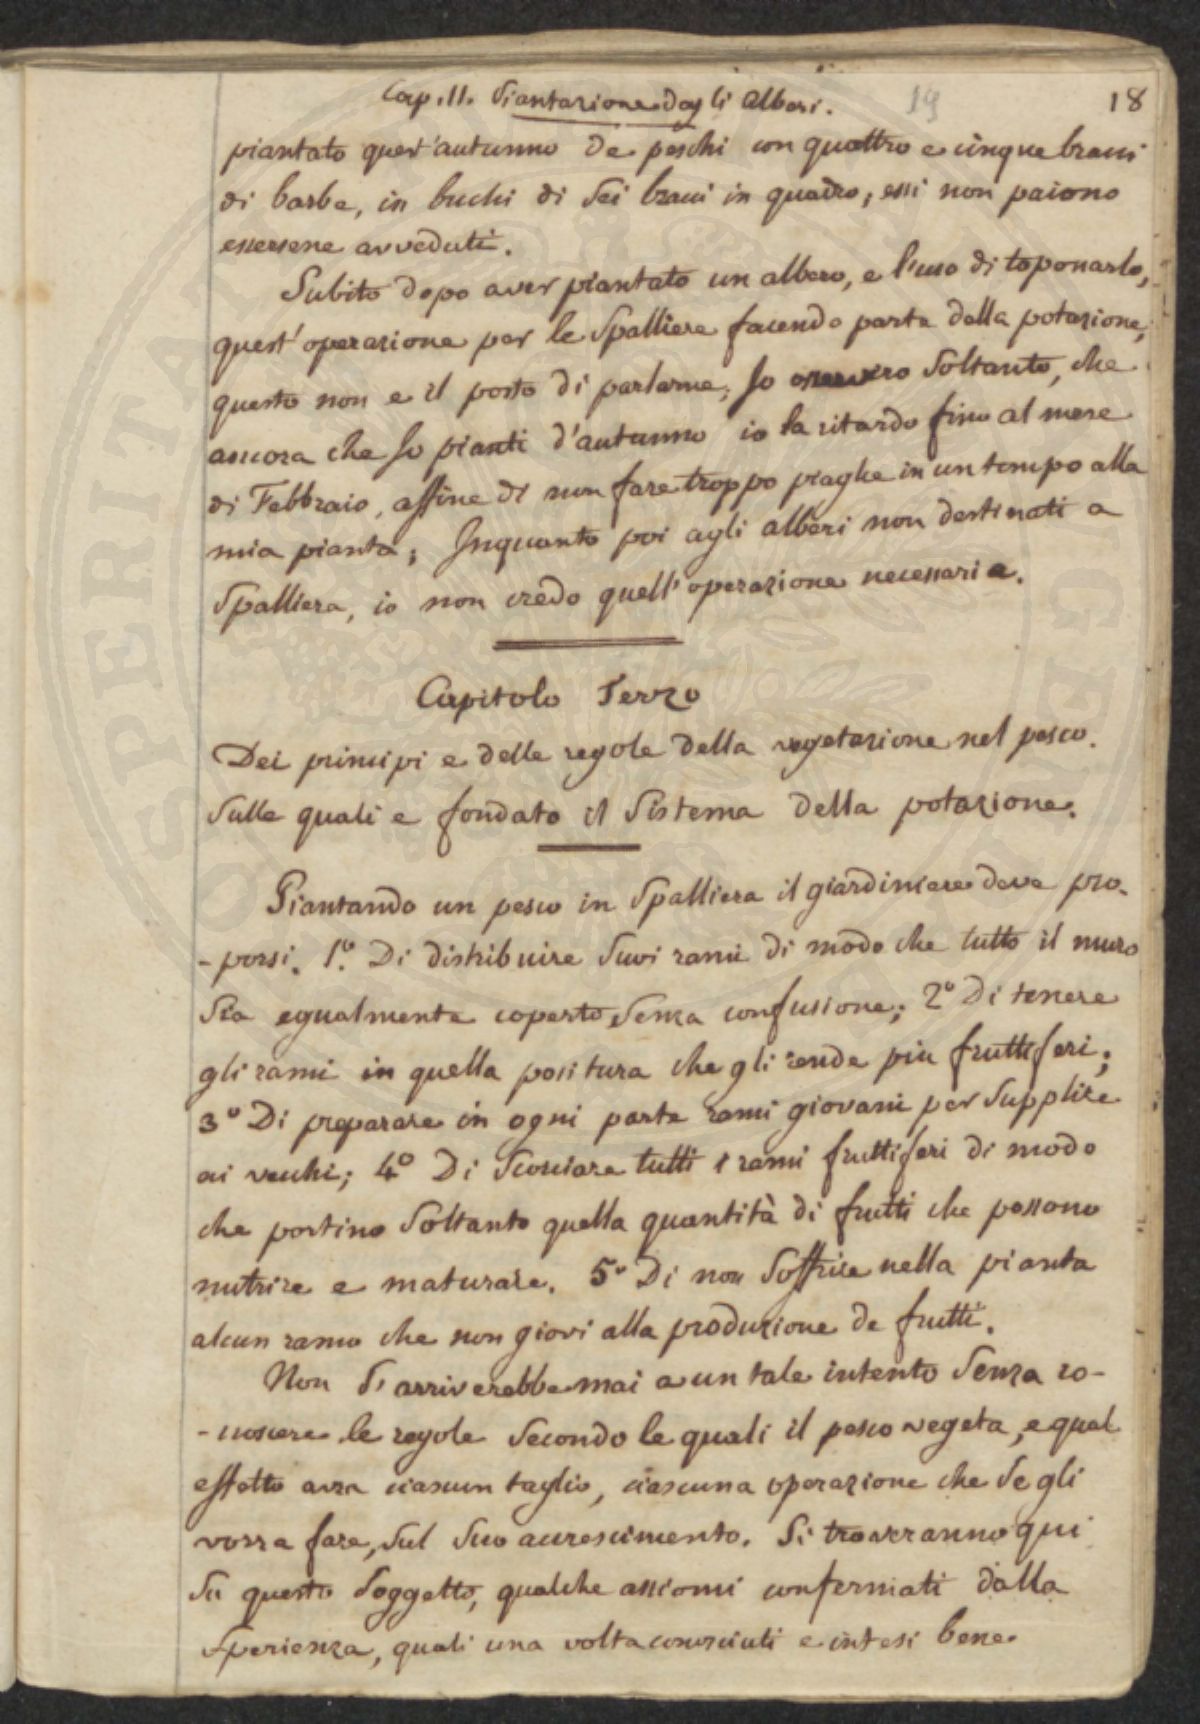 Cap. II. Piantazione degli Alberi. 19 18
piantato quest'autunno de peschi con quattro e cinque bracci
di barbe, in buchi di sei bracci in quadro, essi non paiono
essersene avveduti.
Subito dopo aver piantato un albero, e l'uso di toponarlo,
quest'operazione per le Spalliere facendo parte della potazione,
questo non e il posto di parlarne, Io osservero soltanto, che
ancora che Io pianti d'autunno io la ritardo fino al mese
di Febbraio, affine di non fare troppo piaghe in un tempo alla
mia pianta; Inquanto poi agli alberi non destinati a
Spalliera, io non credo quell'operazione necessaria.
Capitolo Terzo
Dei principi e delle regole della vegetazione nel pesco.
Sulle quali e fondato il Sistema della potazione.
Piantando un pesco in Spalliera il giardiniere deve pro-
-porsi. 1º. Di distribuire suoi rami di modo che tutto il muro
sia egualmente coperto senza confusione; 2º Di tenere
gli rami in quella positura che gli rende piu fruttiferi;
3º Di preparare in ogni parte rami giovani per supplire
ai vecchi; 4º Di Scorciare tutti i rami fruttiferi di modo
che portino soltanto quella quantità di frutti che possono
nutrire e maturare. 5º Di non soffrire nella pianta
alcun ramo che non giovi alla produzione de frutti.
Non s'arriverebbe mai a un tale intento senza co-
-noscere le regole secondo le quali il pesco vegeta, e qual
effetto avra ciascun taglio, ciascuna operazione che se gli
vorra fare, sul suo accrescimento. Si troveranno qui
su questo soggetto, qualche assiomi confermati dalla
sperienza, quali una volta conosciuti e intesi bene